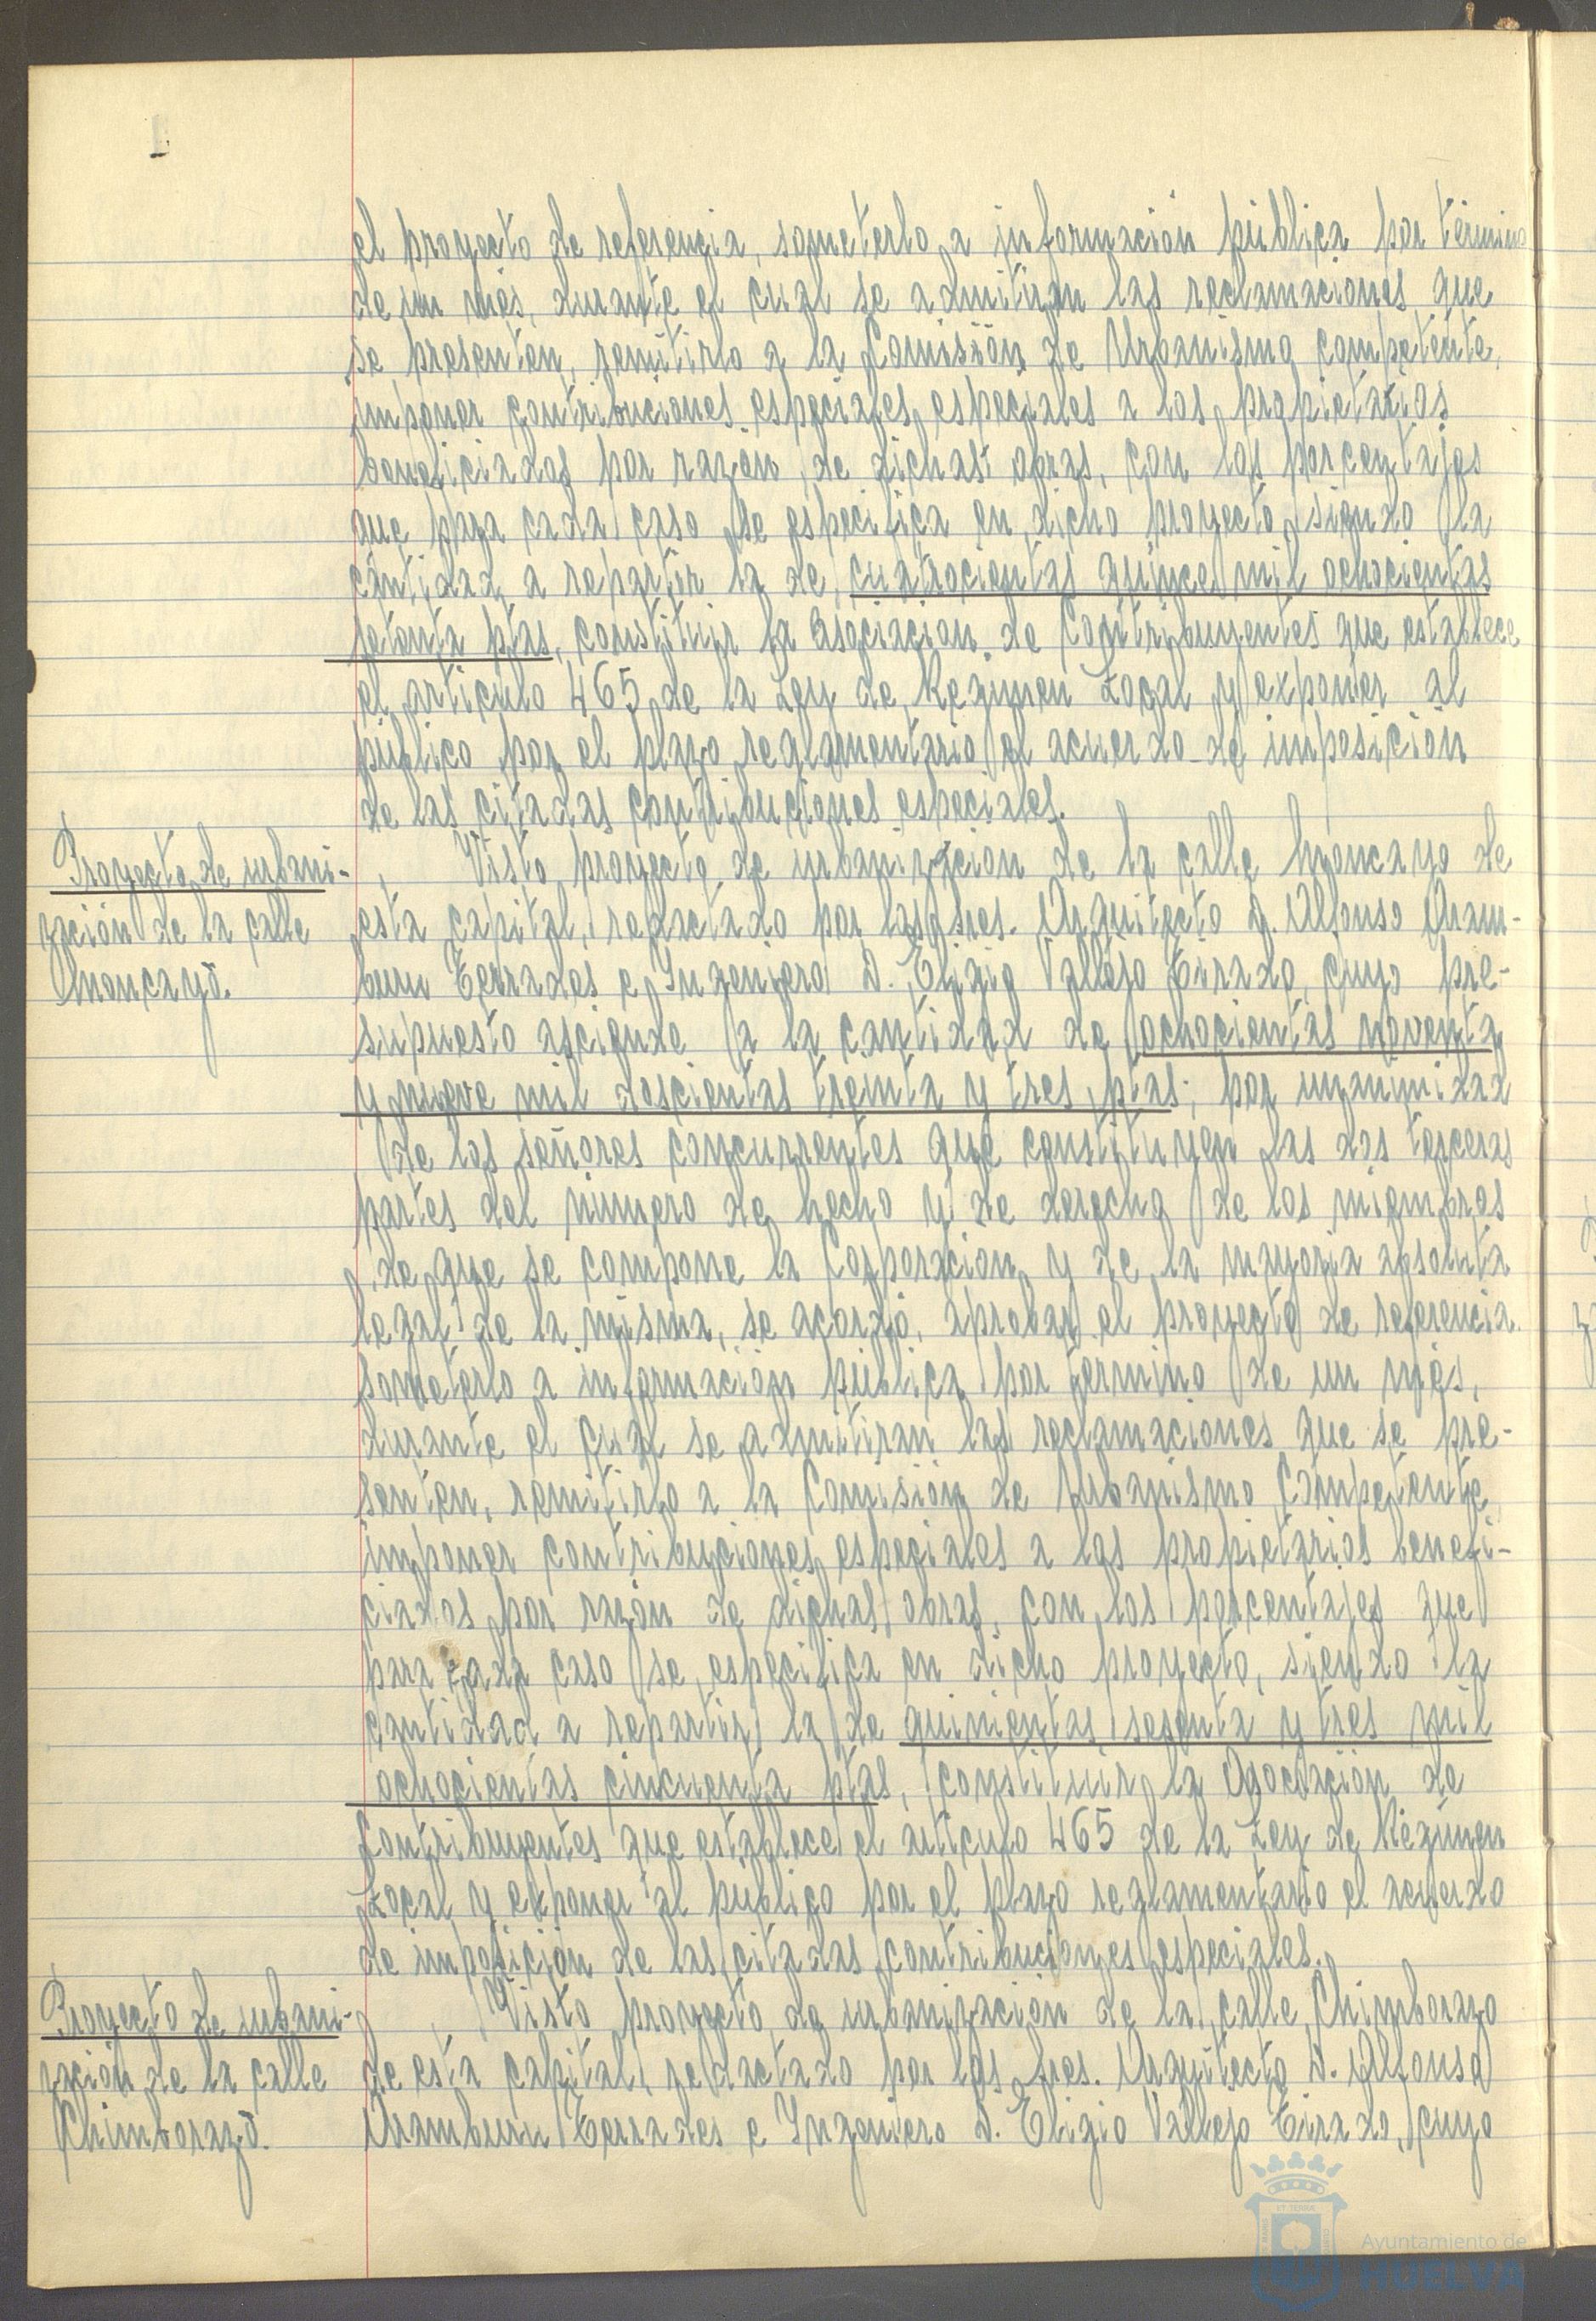 el proyecto de referencia, someterlo a información pública por término
de un mes, durante el cual se admitirán las reclamaciones que
se presenten, remitirlo a la Comisión de Urbanismo competente,
imponer contribuciones especiales especiales a los propietarios
beneficiados por razón de dichas obras, con los porcentajes
que para cada caso se especifica en dicho proyecto, siendo la
cantidad a repartir la de cuatrocientas quince mil ochocientas
setenta ptas, constituir la Asociación de Contribuyentes que establece
el artículo 465 de la Ley de Régimen Local y exponer al
público por el plazo reglamentario el acuerdo de imposición
de las citadas contribuciones especiales.
Proyecto de urbani-
zación de la calle
Moncayo.
Visto proyecto de urbanización de la calle Moncayo de
esta capital, redactado por los sres. Arquitecto D. Alfonso Aram-
buru Terrades e Ingeniero D. Eligio Vallejo Tirado, cuyo pre-
supuesto asciende a la cantidad de ochocientas noventa
y nueve mil doscientas treinta y tres ptas; por unanimidad
de los señores concurrentes que constituyen las dos terceras
partes del número de hecho y de derecho de los miembros
de que se compone la Corporación y de la mayoría absoluta
legal de la misma, se acordó, aprobar el proyecto de referencia
someterlo a información pública por término de un mes,
durante el cual se admitirán las reclamaciones que se pre-
senten, remitirlo a la Comisión de Urbanismo Competente,
imponer contribuciones especiales a los propietarios benefi-
ciados por razón de dichas obras, con los porcentajes que
para cada caso se especifica en dicho proyecto, siendo la
cantidad a repartir la de quinientas sesenta y tres mil
ochocientas cincuenta ptas, constituir la Asociación de
Contribuyentes que establece el artículo 465 de la Ley de Régimen
Local y exponer al público por el plazo reglamentario el acuerdo
de imposición de las citadas contribuciones especiales.
Proyecto de urbani-
zación de la calle
Chimborazo.
Visto proyecto de urbanización de la calle Chimborazo
de esta capital, redactado por los sres. Arquitecto D. Alfonso
Aramburu Terrades e Ingeniero D. Eligio Vallejo Tirado, cuyo
Ayuntamiento de
HUELVA